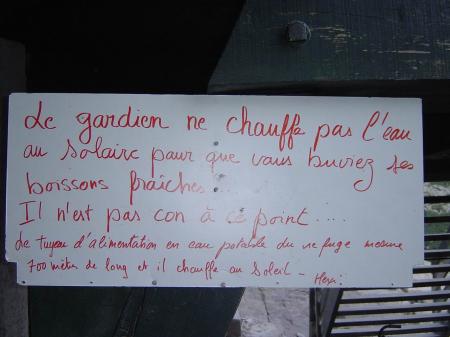 Le gardien ne chauffe pas l'eau
au solaire pour que vous buviez ses
boissons fraîches
Il n'est pas con à ce point....
Le tuyau d'alimentation en eau potable du refuge mesure
700 mètre de long et il chauffe au soleil -